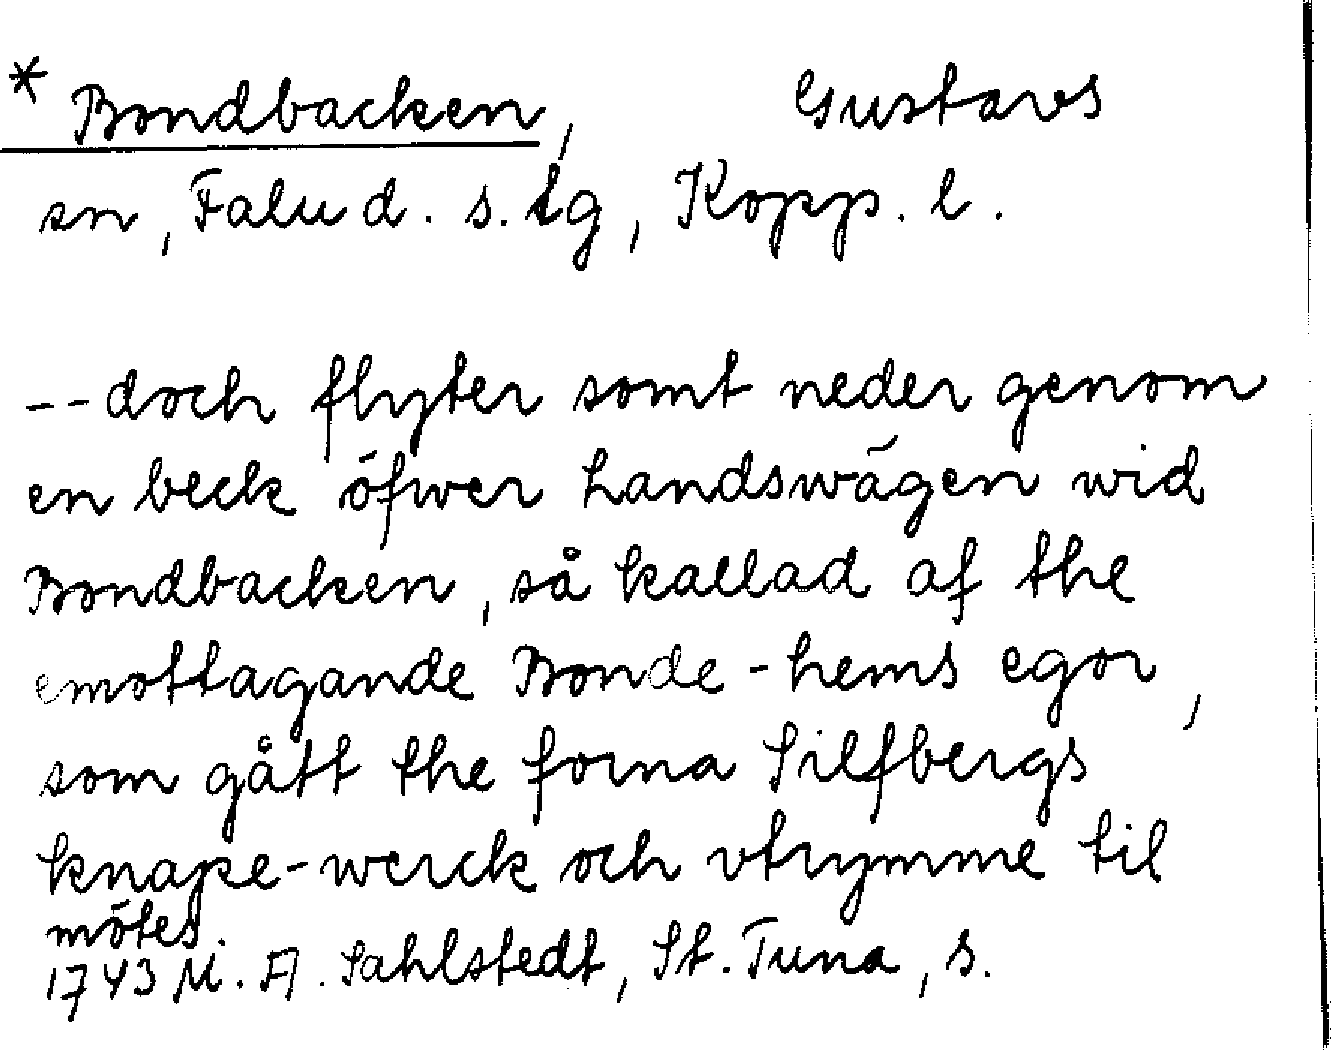 * Bondbacken, Gustavs
sn, Falu d. s. lg, Kopp. l.
-- doch flyter somt neder genom
en beck öfwer landswägen wid
Bondbacken, så kallad af the
emottagande Bonde-hems egor,
som gått the forna Silfbergs
knape-werck och vtrymme til
mötes.
1743 M. A. Sahlstedt, St. Tuna, s.